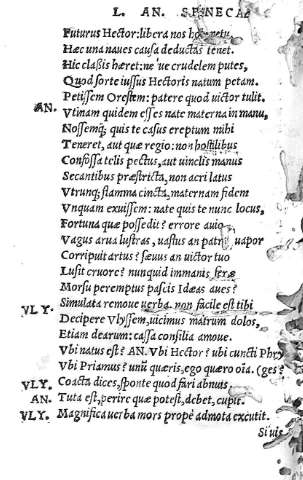 L. AN. SENECAE
Futurus Hector: libera nos hoc metu.
Hæc una naues causa deductas tenet.
Hic classis hæret: ne ue crudelem putes,
Quod sorte iussus Hectoris natum petam.
Petissem Orestem: patere quod uictor tulit.
AN. Vtinam quidem esses nate materna in manu,
Nossemq; quis te casus ereptum mihi
Teneret, aut quæ regio: non hostilibus
Confossa telis pectus, aut uinclis manus
Secantibus præstricta, non acri latus
Vtrunq; flamma cincta, maternam fidem
Vnquam exuissem: nate quis te nunc locus,
Fortuna quæ possedit? errore auio
Vagus arua lustras, uastus an patriæ uapor
Corripuit artus? sæuus an uictor tuo
Lusit cruore? nunquid immanis feræ
Morsu peremptus pascis Idæas aues?
VLY. Simulata remoue uerba. non facile est tibi
Decipere Vlyssem, uicimus matrum dolos,
Etiam dearum: cassa consilia amoue.
Vbi natus est? AN. Vbi Hector? ubi cuncti Phry
Vbi Priamus? unū quæris, ego quæro oīa. (ges?
VLY. Coacta dices, sponte quod fari abnuis.
AN. Tuta est, perire quæ potest, debet, cupit.
VLY. Magnifica uerba mors propè admota excutit.
Si uis